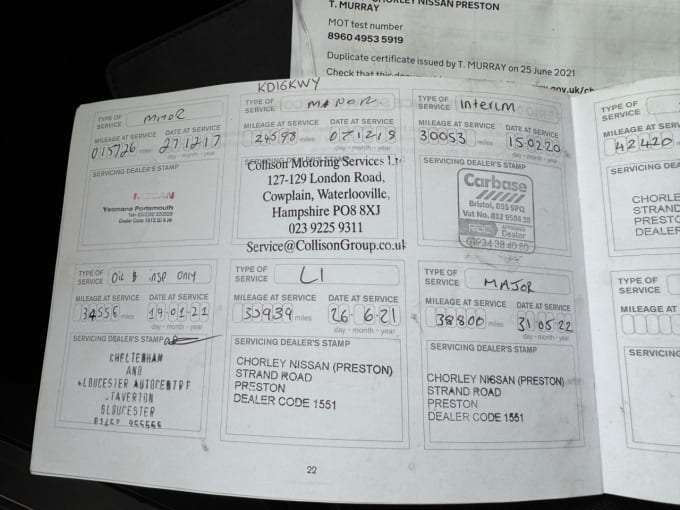 CHORLEY NISSAN PRESTON
T. MURRAY
MOT test number
8960 4953 5919
Duplicate certificate issued by T. MURRAY on 25 June 2021
Check that this
.gov.uk/ch
KD16KWY
TYPE OF SERVICE
MINOR
MILEAGE AT SERVICE DATE AT SERVICE
015726 miles 27 12 17
day - month - year
SERVICING DEALER'S STAMP
NISSAN
Yeomans Portsmouth
TYPE OF SERVICE
MAJOR
MILEAGE AT SERVICE DATE AT SERVICE
24598 07 12 18
SERVICING DEALER'S STAMP
Collison Motoring Services Lt
127-129 London Road,
Cowplain, Waterlooville,
Hampshire PO8 8XJ
023 9225 9311
Service@CollisonGroup.co.uk
TYPE OF SERVICE
Interim
MILEAGE AT SERVICE DATE AT SERVICE
30053 miles 15 02 20
day - month - year
SERVICING DEALER'S STAMP
Carbase
Bristol, BS5 5PQ
Vat No. 832 9504 38
RAC APPROVED Dealer
01934 38 40 60
TYPE OF SERVICE
MILEAGE AT SERVICE
42420
SERVICING DEALER
CHORL
STRAND
PREST
DEALER
TYPE OF SERVICE
Oil & insp only
MILEAGE AT SERVICE DATE AT SERVICE
34556 miles 19 01 21
day - month - year
SERVICING DEALER'S STAMP
CHELTENHAM
AND
GLOUCESTER AUTOCENTRE
STAVERTON
GLOUCESTER
TYPE OF SERVICE
LI
MILEAGE AT SERVICE DATE AT SERVICE
35939 miles 26 6 21
day - month - year
SERVICING DEALER'S STAMP
CHORLEY NISSAN (PRESTON)
STRAND ROAD
PRESTON
DEALER CODE 1551
TYPE OF SERVICE
MAJOR
MILEAGE AT SERVICE DATE AT SERVICE
38800 miles 31 05 22
day - month - year
SERVICING DEALER'S STAMP
CHORLEY NISSAN (PRESTON)
STRAND ROAD
PRESTON
DEALER CODE 1551
TYPE OF SERVICE
MILEAGE AT SE
SERVICING
22